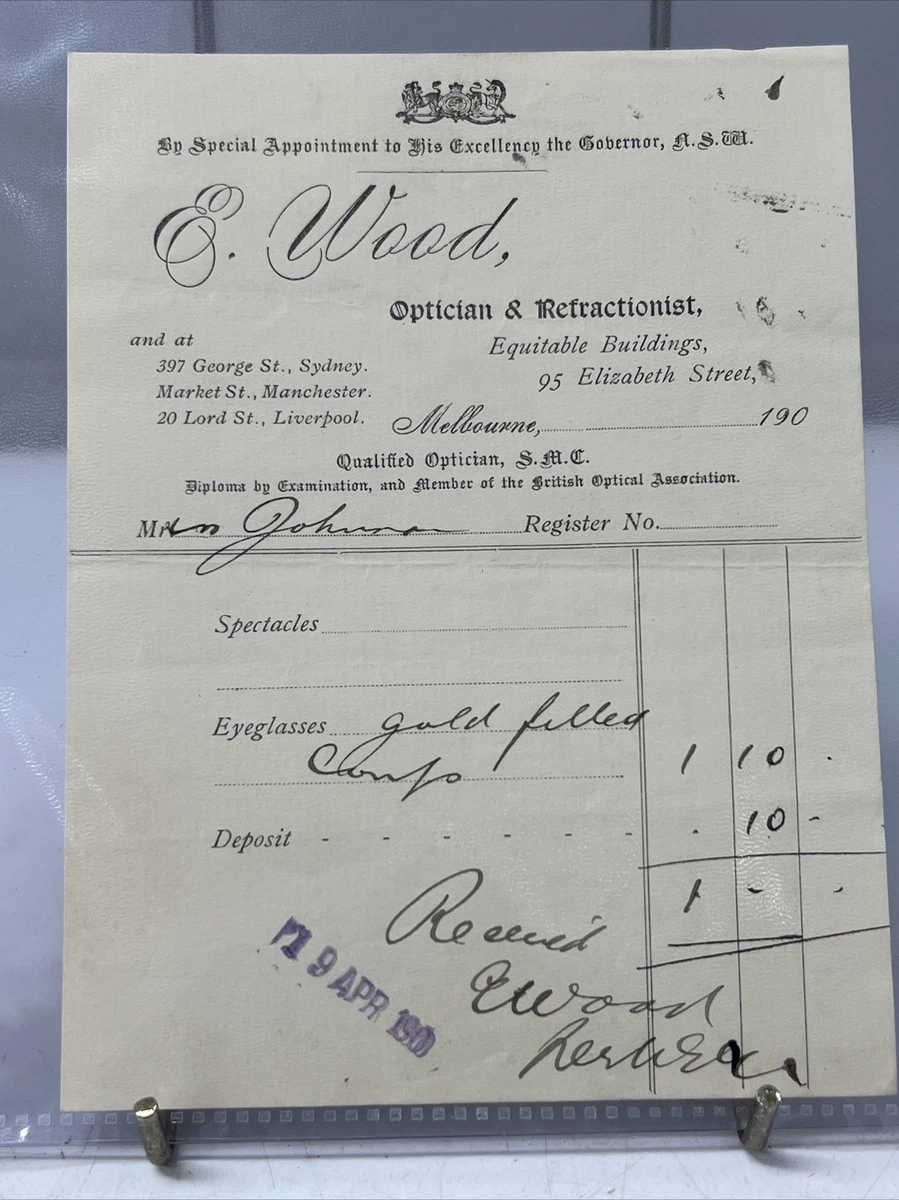 By Special Appointment to His Excellency the Governor, N.S.W.
E. Wood,
Optician & Refractionist,
and at
397 George St., Sydney.
Market St., Manchester.
20 Lord St., Liverpool.
Equitable Buildings,
95 Elizabeth Street,
Melbourne, 190
Qualified Optician, S.M.C.
Diploma by Examination, and Member of the British Optical Association.
Mrs Johnson Register No.
Spectacles
Eyeglasses gold filled
1 10 .
Deposit - - - - - - . 10 -
1 - -
Received
E Wood
19 APR
per